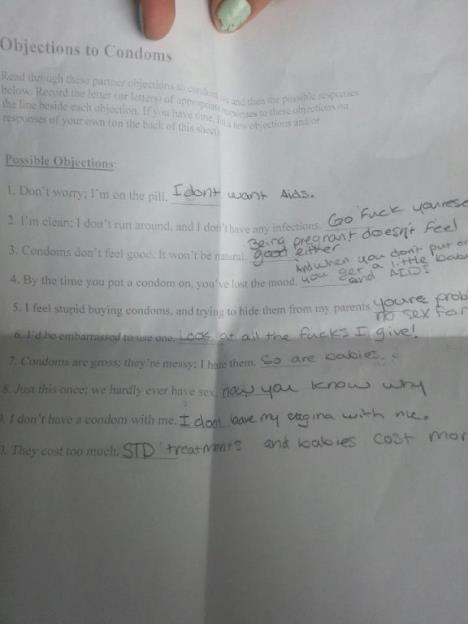 Objections to Condoms
Read through these partner objections to condom and then the possible responses
below. Record the letter (or letters) of appropriate responses to these objections on
the line beside each objection. If you have time, a few objections and/or
responses of your own (on the back of this sheet).
Possible Objections:
1. Don't worry; I'm on the pill. I dont want Aids.
2. I'm clean; I don't run around, and I don't have any infections. Go Fuck yourese
3. Condoms don't feel good. It won't be natural. Being pregnant doesn't feel good either
4. By the time you put a condom on, you've lost the mood. And when you don't put on you get a little baby and AIDS
5. I feel stupid buying condoms, and trying to hide them from my parents. youre prob no sex for
6. I'd be embarrassed to use one. Look at all the fucks I give!
7. Condoms are gross; they're messy; I hate them. So are babies.
8. Just this once; we hardly ever have sex. now you know why
9. I don't have a condom with me. I dont have my vagina with me.
0. They cost too much. STD treatments and babies cost mor